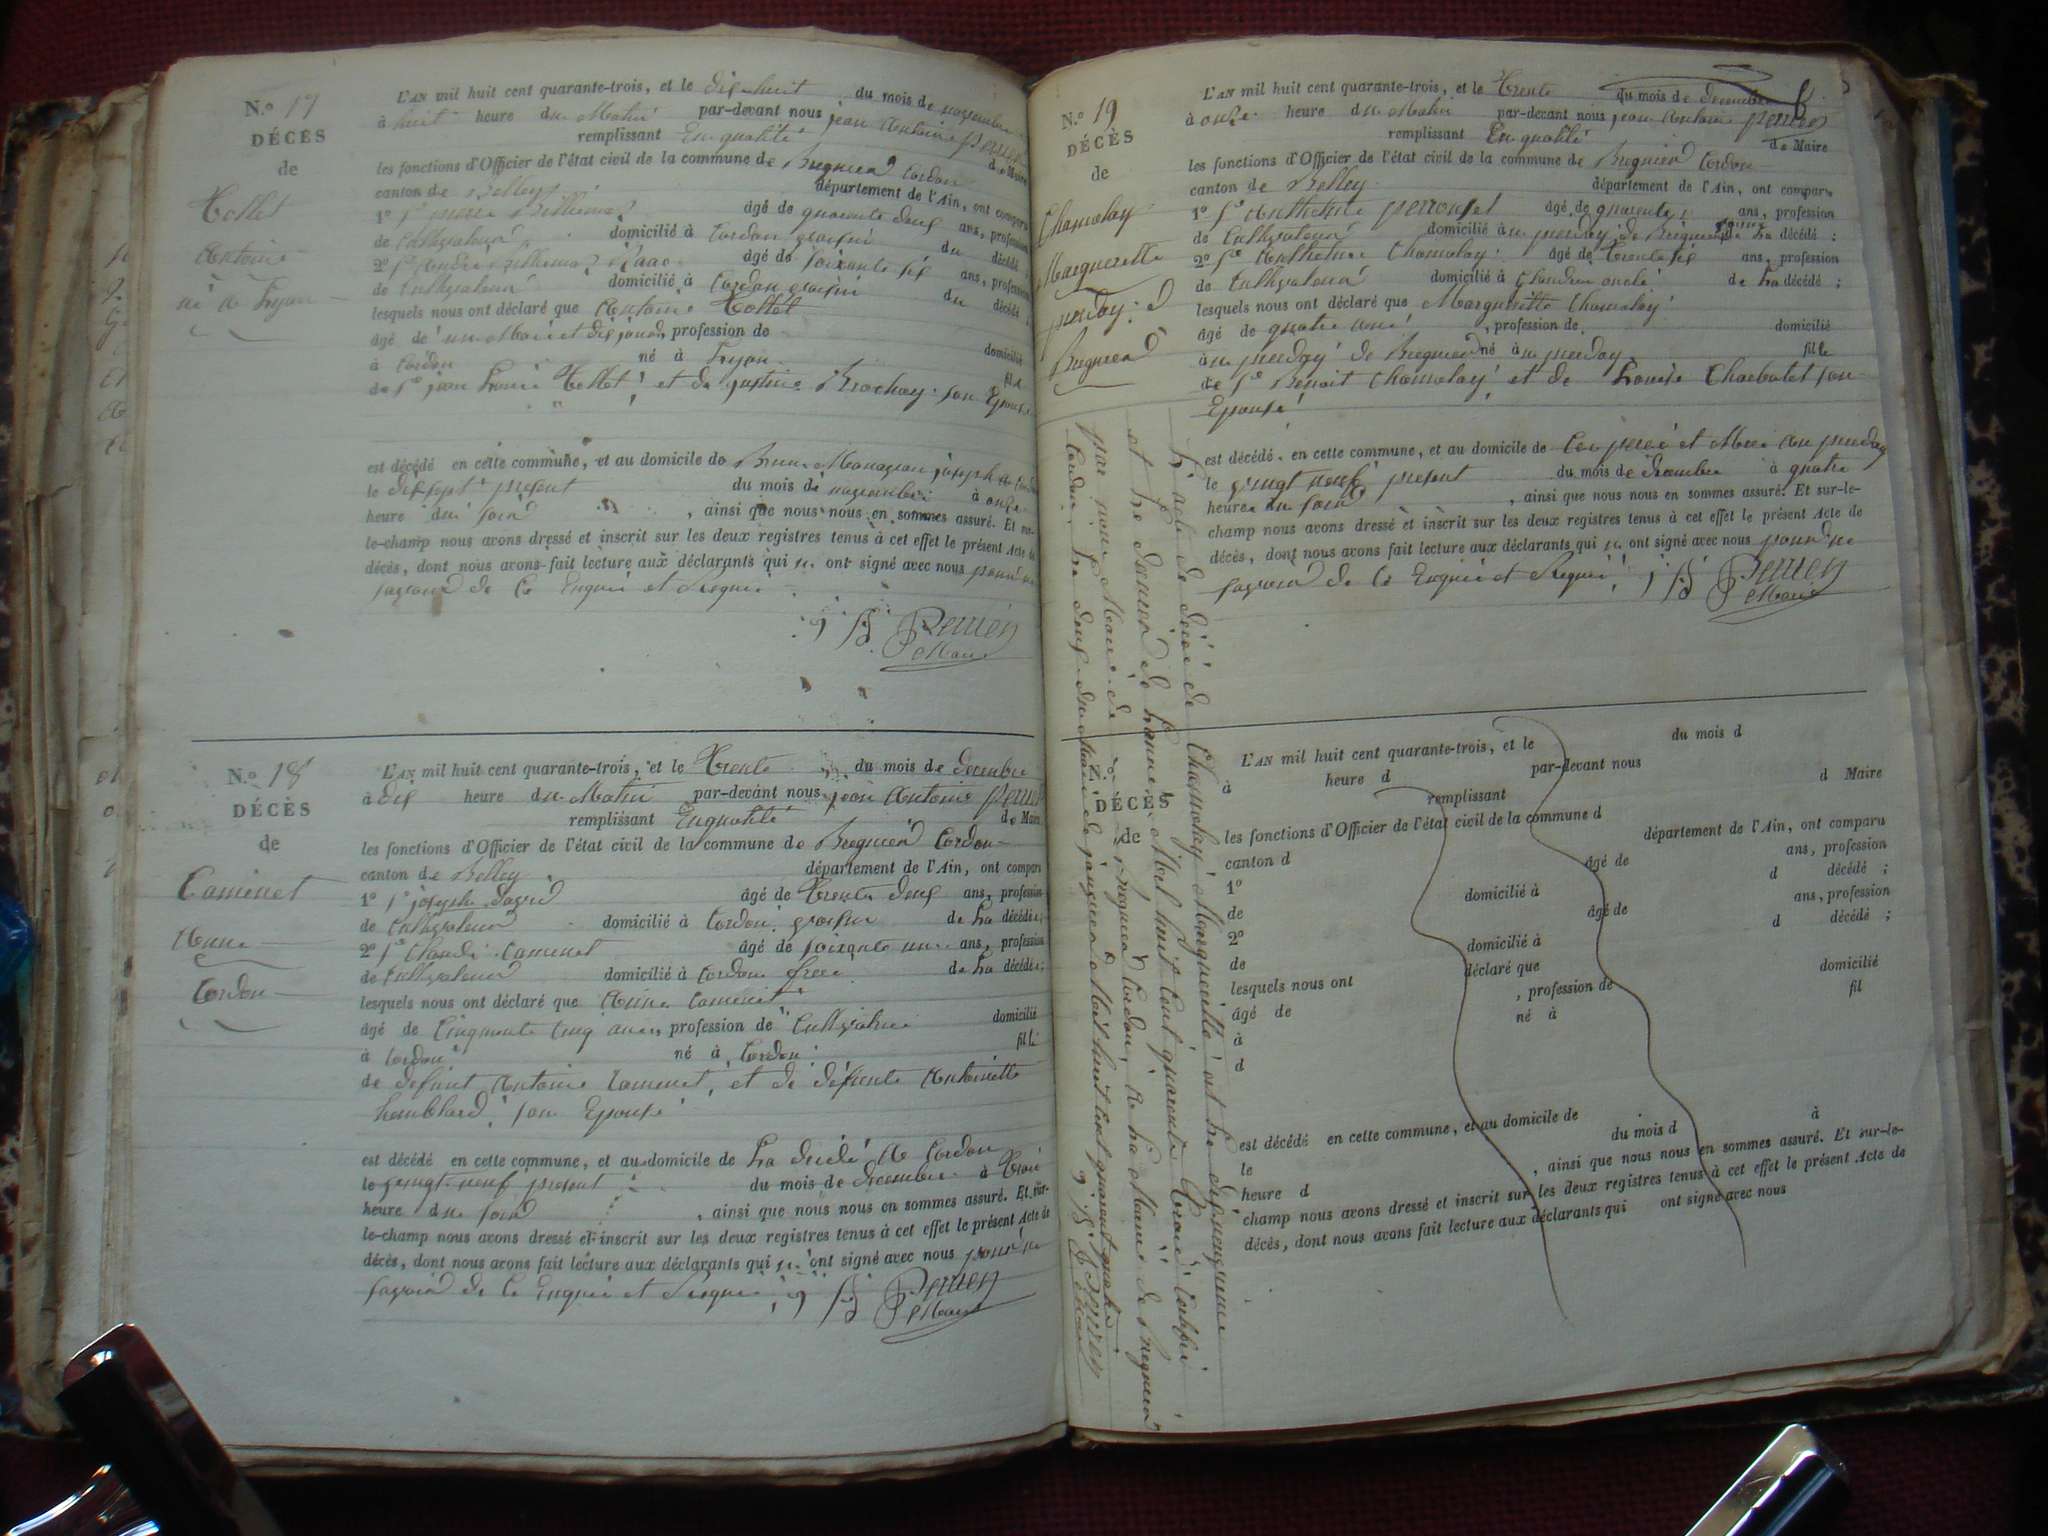 N.º 17
DÉCÈS
de
Tollet
Antoine
né à Lyon
L'AN mil huit cent quarante-trois, et le dix huit du mois de novembre
à huit heure du Matin par-devant nous jean Antoine perrier
remplissant En qualité de Maire
les fonctions d'Officier de l'état civil de la commune de Bregnier Cordon
canton de Belley département de l'Ain, ont comparu
1º Sr pierre âgé de quarante deux ans, profession
de Cultivateur domicilié à Cordon voisin du décédé ;
2º Sr André âgé de soixante six ans, profession
de Cultivateur domicilié à Cordon voisin du décédé ;
lesquels nous ont déclaré que Antoine Tollet
âgé de un Mois et dix jours, profession de domicilié
à Cordon né à Lyon fils
de Sr jean Tollet et de justine Brochay son Epouse
est décédé en cette commune, et au domicile de joseph de Cordon
le dix sept présent du mois de novembre à onze
heure du soir, ainsi que nous nous en sommes assuré. Et sur-
le-champ nous avons dressé et inscrit sur les deux registres tenus à cet effet le présent Acte de
décès, dont nous avons fait lecture aux déclarants qui n' ont signé avec nous pour ne
savoir de ce Enquis et Requis
Perrier
Maire
N.º 18
DÉCÈS
de
Camenet
Anne
Cordon
L'AN mil huit cent quarante-trois, et le Trente du mois de décembre
à dix heure du Matin par-devant nous jean Antoine perrier
remplissant En qualité de Maire
les fonctions d'Officier de l'état civil de la commune de Bregnier Cordon
canton de Belley département de l'Ain, ont comparu
1º Sr joseph david âgé de Trente deux ans, profession
de Cultivateur domicilié à Cordon voisin de La décédée ;
2º Sr Claude Camenet âgé de soixante un ans, profession
de Cultivateur domicilié à Cordon frere de La décédée ;
lesquels nous ont déclaré que Anne Camenet
âgé de Cinquante Cinq ans, profession de Cultivatrice domicilié
à Cordon né à Cordon fille
de défunt Antoine Camenet, et de défunte Antoinette
son Epouse
est décédé en cette commune, et au domicile de La décédé à Cordon
le vingt neuf présent du mois de décembre à Trois
heure du soir, ainsi que nous nous en sommes assuré. Et sur-
le-champ nous avons dressé et inscrit sur les deux registres tenus à cet effet le présent Acte de
décès, dont nous avons fait lecture aux déclarants qui n' ont signé avec nous pour ne
savoir de ce Enquis et Requis
Perrier
Maire
N.º 19
DÉCÈS
de
Chamolay
Marguerette
Bregnier
L'AN mil huit cent quarante-trois, et le Trente du mois de décembre
à onze heure du Matin par-devant nous jean Antoine perrier
remplissant En qualité de Maire
les fonctions d'Officier de l'état civil de la commune de Bregnier Cordon
canton de Belley département de l'Ain, ont comparu
1º Sr Anthelme perrousset âgé de quarante ans, profession
de Cultivateur domicilié à de Bregnier voisin de La décédé ;
2º Sr Anthelme Chamolay âgé de Trente six ans, profession
de Cultivateur domicilié à oncle de La décédé ;
lesquels nous ont déclaré que Marguerette Chamolay
âgé de quatre ans, profession de domicilié
à de Bregnier né à fille
de Sr Benoit Chamolay et de Louise Charbotet son
Epouse
est décédé en cette commune, et au domicile de Ces père et Mere
le vingt neuf présent du mois de décembre à quatre
heure du soir, ainsi que nous nous en sommes assuré. Et sur-le-
champ nous avons dressé et inscrit sur les deux registres tenus à cet effet le présent Acte de
décès, dont nous avons fait lecture aux déclarants qui n' ont signé avec nous pour ne
savoir de ce Enquis et Requis
Perrier
Maire
L'acte de décès de Chamolay Marguerette est Le dixneuvieme
et Le dernier de L'année Mil huit Cent quarante Trois Certifié
par nous Maire de Bregnier Cordon, à La Mairie de Bregnier
Cordon, Le deux du Mois de janvier Mil huit Cent quarante quatre
Perrier
DÉCÈS
de
L'AN mil huit cent quarante-trois, et le du mois d
à heure d par-devant nous
remplissant d Maire
les fonctions d'Officier de l'état civil de la commune d
canton d département de l'Ain, ont comparu
1º âgé de ans, profession
de domicilié à d décédé ;
2º âgé de ans, profession
de domicilié à d décédé ;
lesquels nous ont déclaré que
âgé de , profession de domicilié
à né à fil
d
est décédé en cette commune, et au domicile de
le du mois d à
heure d , ainsi que nous nous en sommes assuré. Et sur-le-
champ nous avons dressé et inscrit sur les deux registres tenus à cet effet le présent Acte de
décès, dont nous avons fait lecture aux déclarants qui ont signé avec nous